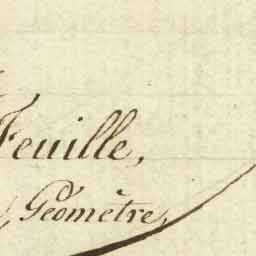 Feuille,
, Géomètre,